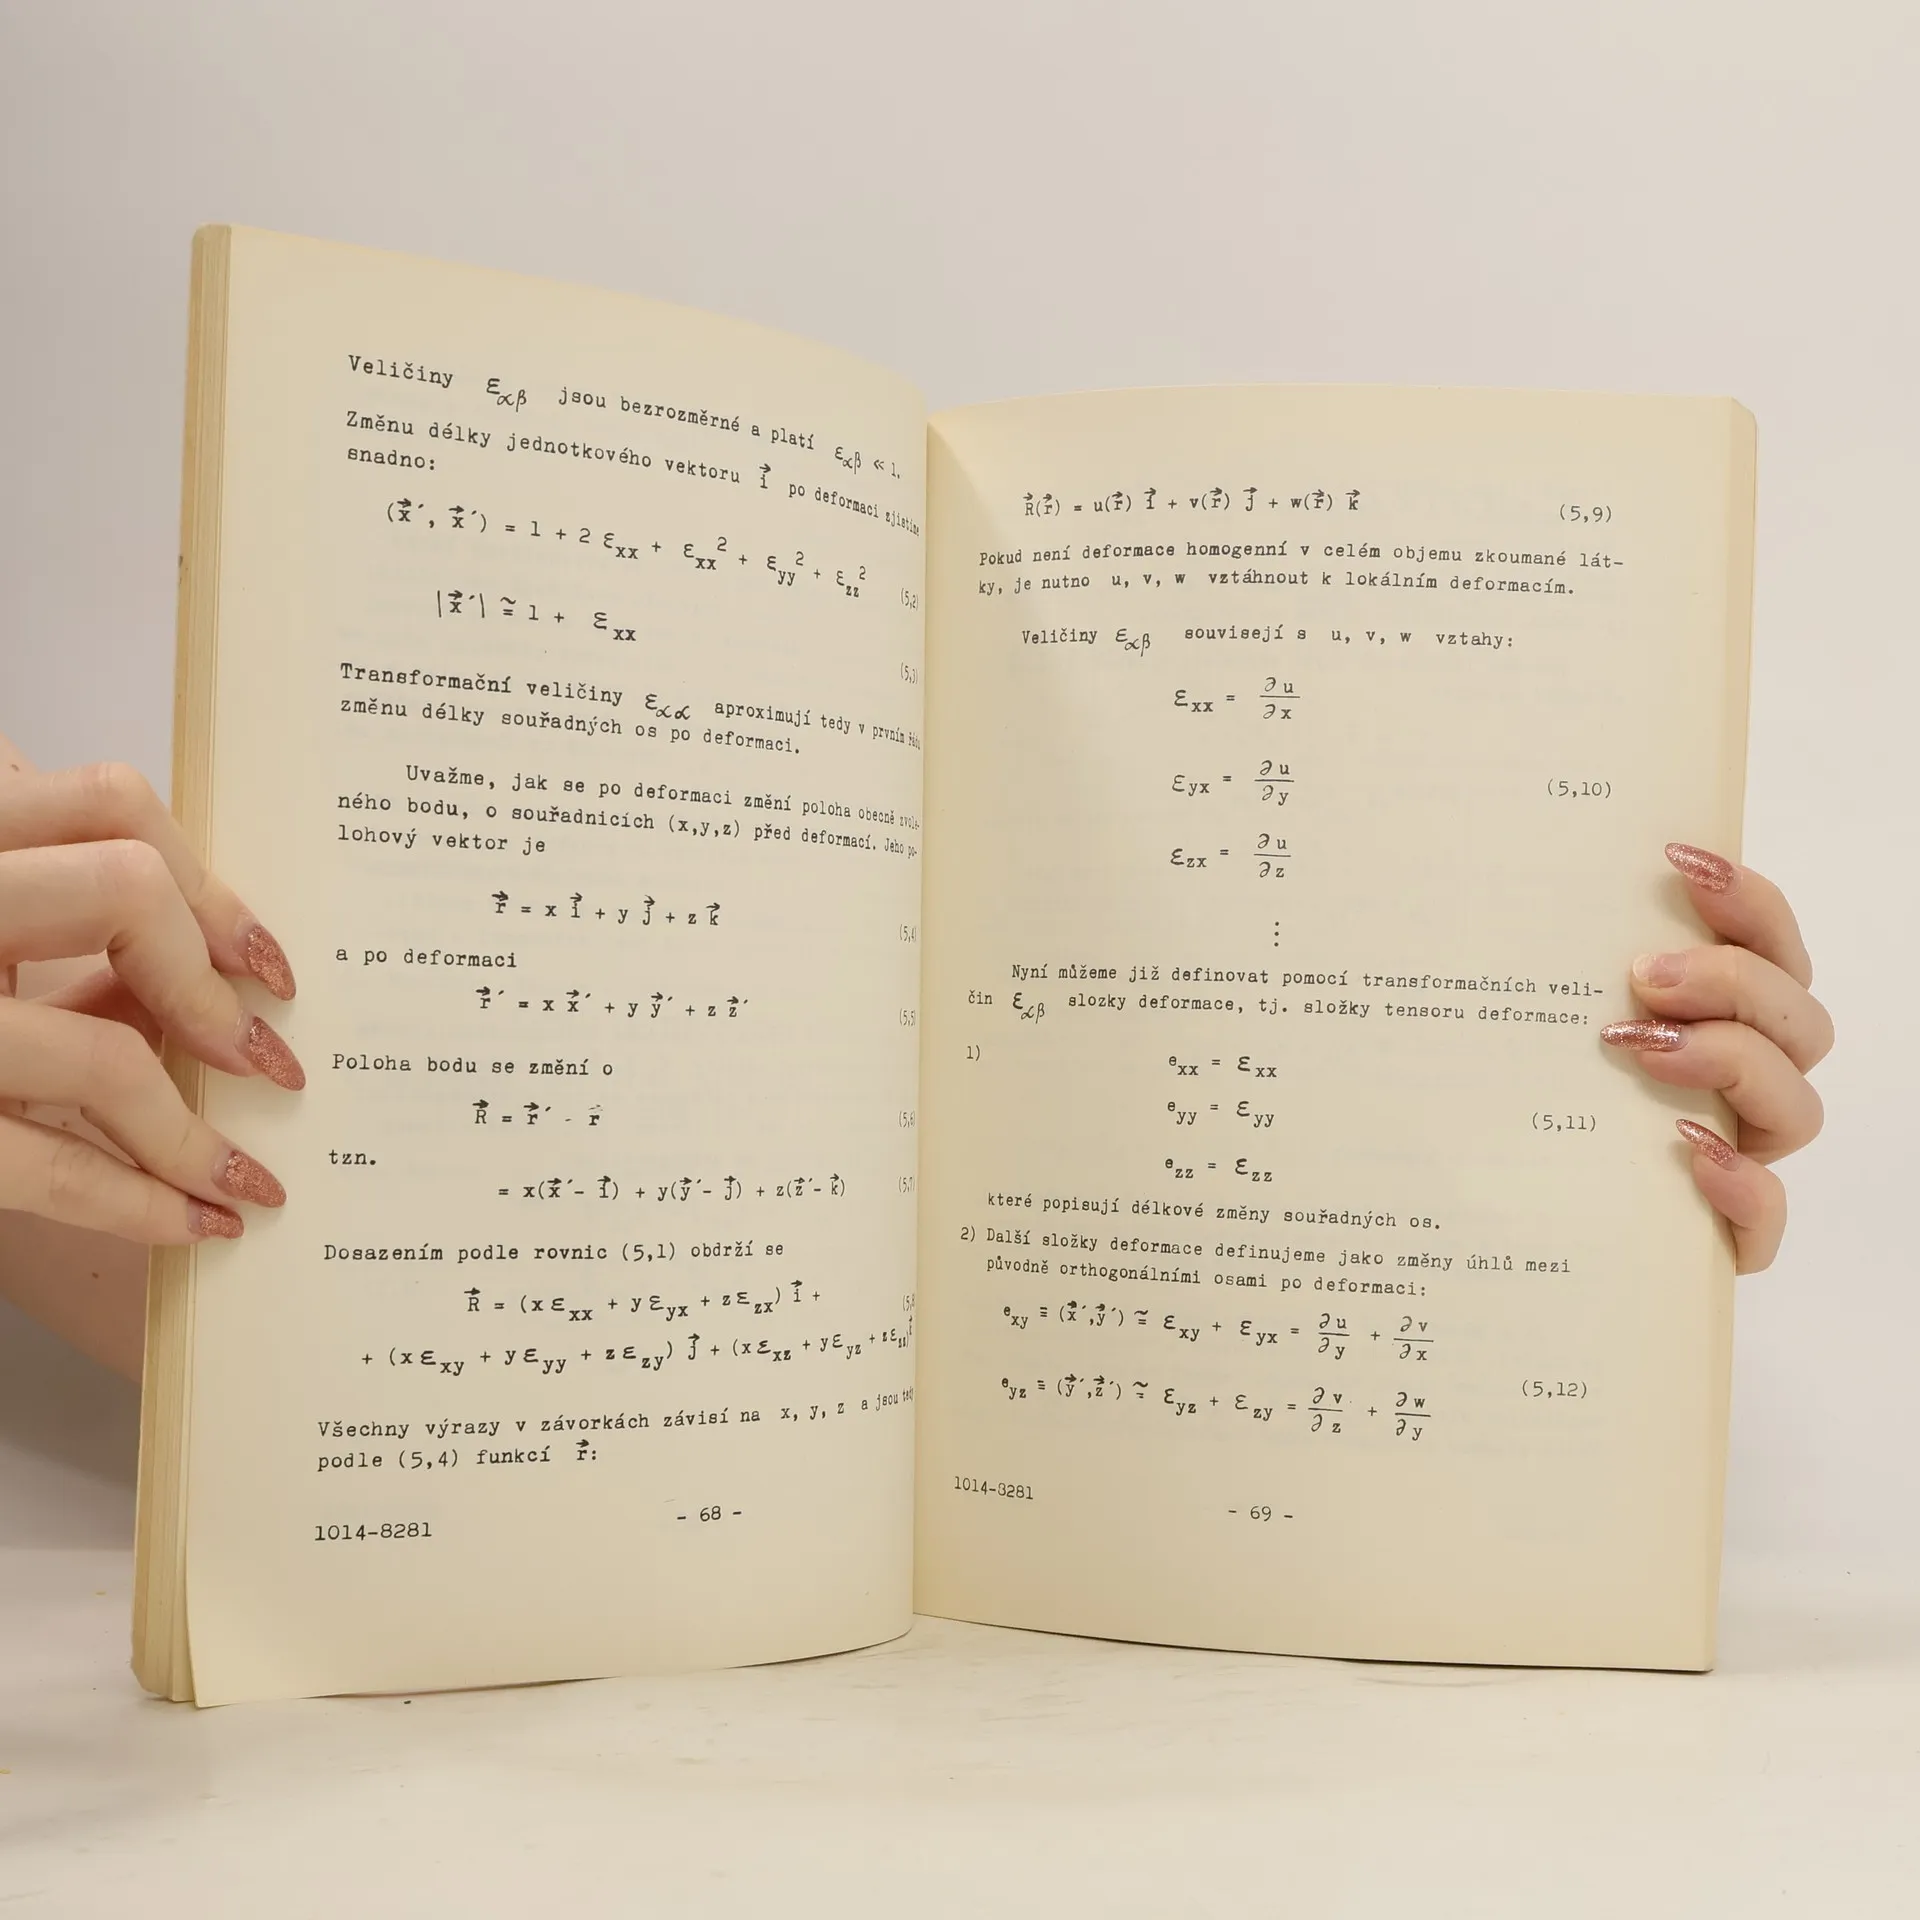 Veličiny ε_αβ jsou bezrozměrné a platí ε_αβ ≪ 1.
Změnu délky jednotkového vektoru i⃗ po deformaci zjistíme
snadno:
(x⃗′, x⃗′) = 1 + 2 ε_xx + ε_xx² + ε_yy² + ε_zz² (5,2)
|x⃗′| ≅ 1 + ε_xx (5,3)
Transformační veličiny ε_αα aproximují tedy v prvním řádu
změnu délky souřadných os po deformaci.
Uvažme, jak se po deformaci změní poloha obecně zvole-
ného bodu, o souřadnicích (x,y,z) před deformací. Jeho po-
lohový vektor je
r⃗ = x i⃗ + y j⃗ + z k⃗ (5,4)
a po deformaci
r⃗′ = x x⃗′ + y y⃗′ + z z⃗′ (5,5)
Poloha bodu se změní o
R⃗ = r⃗′ - r⃗ (5,6)
tzn.
= x(x⃗′- i⃗) + y(y⃗′- j⃗) + z(z⃗′- k⃗) (5,7)
Dosazením podle rovnic (5,1) obdrží se
R⃗ = (x ε_xx + y ε_yx + z ε_zx) i⃗ + (5,8
+ (x ε_xy + y ε_yy + z ε_zy) j⃗ + (x ε_xz + y ε_yz + z ε_zz) k⃗
Všechny výrazy v závorkách závisí na x, y, z a jsou tedy
podle (5,4) funkcí r⃗:
1014-8281
- 68 -
R⃗(r⃗) = u(r⃗) i⃗ + v(r⃗) j⃗ + w(r⃗) k⃗ (5,9)
Pokud není deformace homogenní v celém objemu zkoumané lát-
ky, je nutno u, v, w vztáhnout k lokálním deformacím.
Veličiny ε_αβ souvisejí s u, v, w vztahy:
ε_xx = ∂u/∂x
ε_yx = ∂u/∂y (5,10)
ε_zx = ∂u/∂z
⋮
Nyní můžeme již definovat pomocí transformačních veli-
čin ε_αβ slozky deformace, tj. složky tensoru deformace:
1) e_xx = ε_xx
e_yy = ε_yy (5,11)
e_zz = ε_zz
které popisují délkové změny souřadných os.
2) Další složky deformace definujeme jako změny úhlů mezi
původně orthogonálními osami po deformaci:
e_xy ≡ (x⃗′,y⃗′) ≅ ε_xy + ε_yx = ∂u/∂y + ∂v/∂x
e_yz ≡ (y⃗′,z⃗′) ≅ ε_yz + ε_zy = ∂v/∂z + ∂w/∂y (5,12)
1014-8281
- 69 -